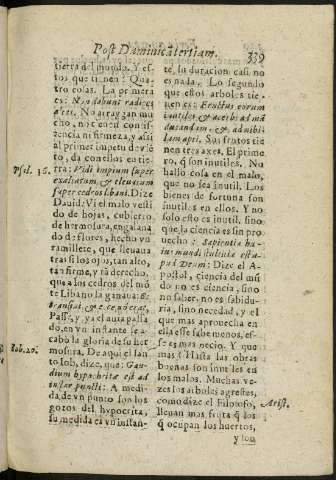 Post Dominicā tertiam. 339
tierra del mundo. Y es-
tos que tienen? Qua-
tro cosas. La primera
es: Non dabunt radices
altas. No arraygan mu
cho, no tienen consis-
tencia ni firmeza, y assi
al primer impetu de vië
to, da con ellos en tie-
rra: Vidi impium super
Psal. 36.
exaltatum & eleuatum
super cedros Libani. Dize
Dauid: Vi el malo vesti
do de hojas, cubierto
de hermosura, engalana
do de flores, hecho vn
ramillete, que lleuaua
tras si los ojo, tan alto,
tan firme, y tā derecho,
que a los cedros del mō
te Libano la ganaua:
Passò, y ya el aura passa
do, en vn instante se a-
cabò la gloria de su her
mosura. De aqui el san
Iob. 20.
to Iob, dize, que: Gau-
dium hypocritæ est ad
instar puncti: A medi-
da de vn punto son los
gozos del hypocrita,
su medida es vn instan-
te, su duracion casi no
es nada. Lo segundo
que estos arboles tie-
nen es: Fructus eorum
inutiles & acerbi ad mā
ducandum, & ad nihi-
lum apti. Sus frutos tie-
nen tres axes. El prime-
ro, q̃ son inutiles. No
hallo cosa en el malo,
que no sea inutil. Los
bienes de fortuna son
inutiles en ellos. Y no
solo esto es inutil, sino
que la ciencia es sin pro
uecho: Sapientia hu-
ius mundi stultitia est a-
pud Deum: Dize el A-
postol, ciencia del mũ
do no es ciencia, sino
no saber, no es sabidu-
ria, sino necedad, y el
que mas aprouecha en
ella esse sabe menos, es-
se es mas necio. Y que
mas? Hasta las obras
buenas son inutiles en
los malos. Muchas ve-
zes los arboles agrestes,
como dize el Filosofo,
Arist.
lleuan mas fruta q̃ los
q̃ ocupan los huertos,
y son